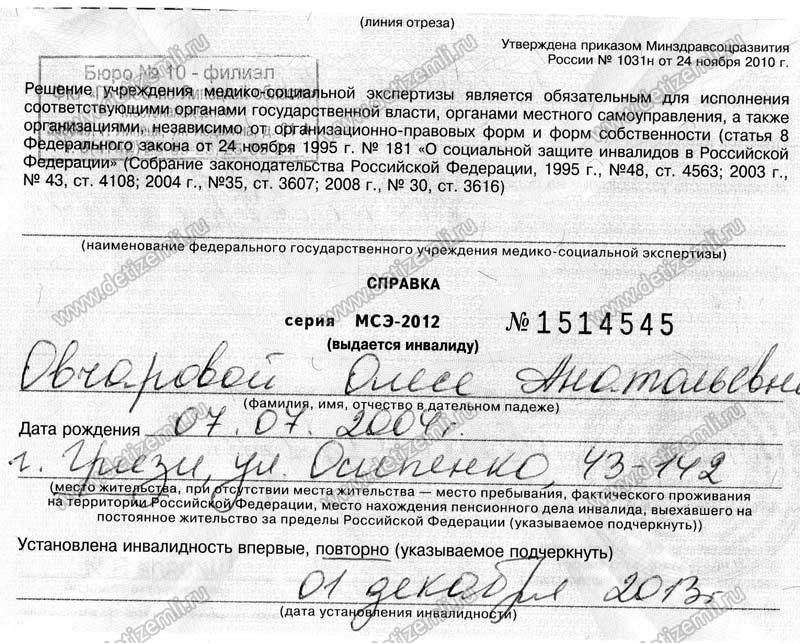 (линия отреза)
Утверждена приказом Минздравсоцразвития
России № 1031н от 24 ноября 2010 г.
Бюро № 10 - филиал
Решение учреждения медико-социальной экспертизы является обязательным для исполнения
соответствующими органами государственной власти, органами местного самоуправления, а также
организациями независимо от организационно-правовых форм и форм собственности (статья 8
Федерального закона от 24 ноября 1995 г. № 181 «О социальной защите инвалидов в Российской
Федерации» (Собрание законодательства Российской Федерации, 1995 г., №48, ст. 4563; 2003 г.,
№ 43, ст. 4108; 2004 г., №35, ст. 3607; 2008 г., № 30, ст. 3616)
(наименование федерального государственного учреждения медико-социальной экспертизы)
СПРАВКА
серия МСЭ-2012 № 1514545
(выдается инвалиду)
Овчаровой Олесе Анатольевне
(фамилия, имя, отчество в дательном падеже)
Дата рождения 07.07.2004г.
г. Грязи, ул. Осипенко, 43-142
(место жительства, при отсутствии места жительства — место пребывания, фактического проживания
на территории Российской Федерации, место нахождения пенсионного дела инвалида, выехавшего на
постоянное жительство за пределы Российской Федерации (указываемое подчеркнуть))
Установлена инвалидность впервые, повторно (указываемое подчеркнуть)
01 декабря 2013г
(дата установления инвалидности)
www.detizemli.ru